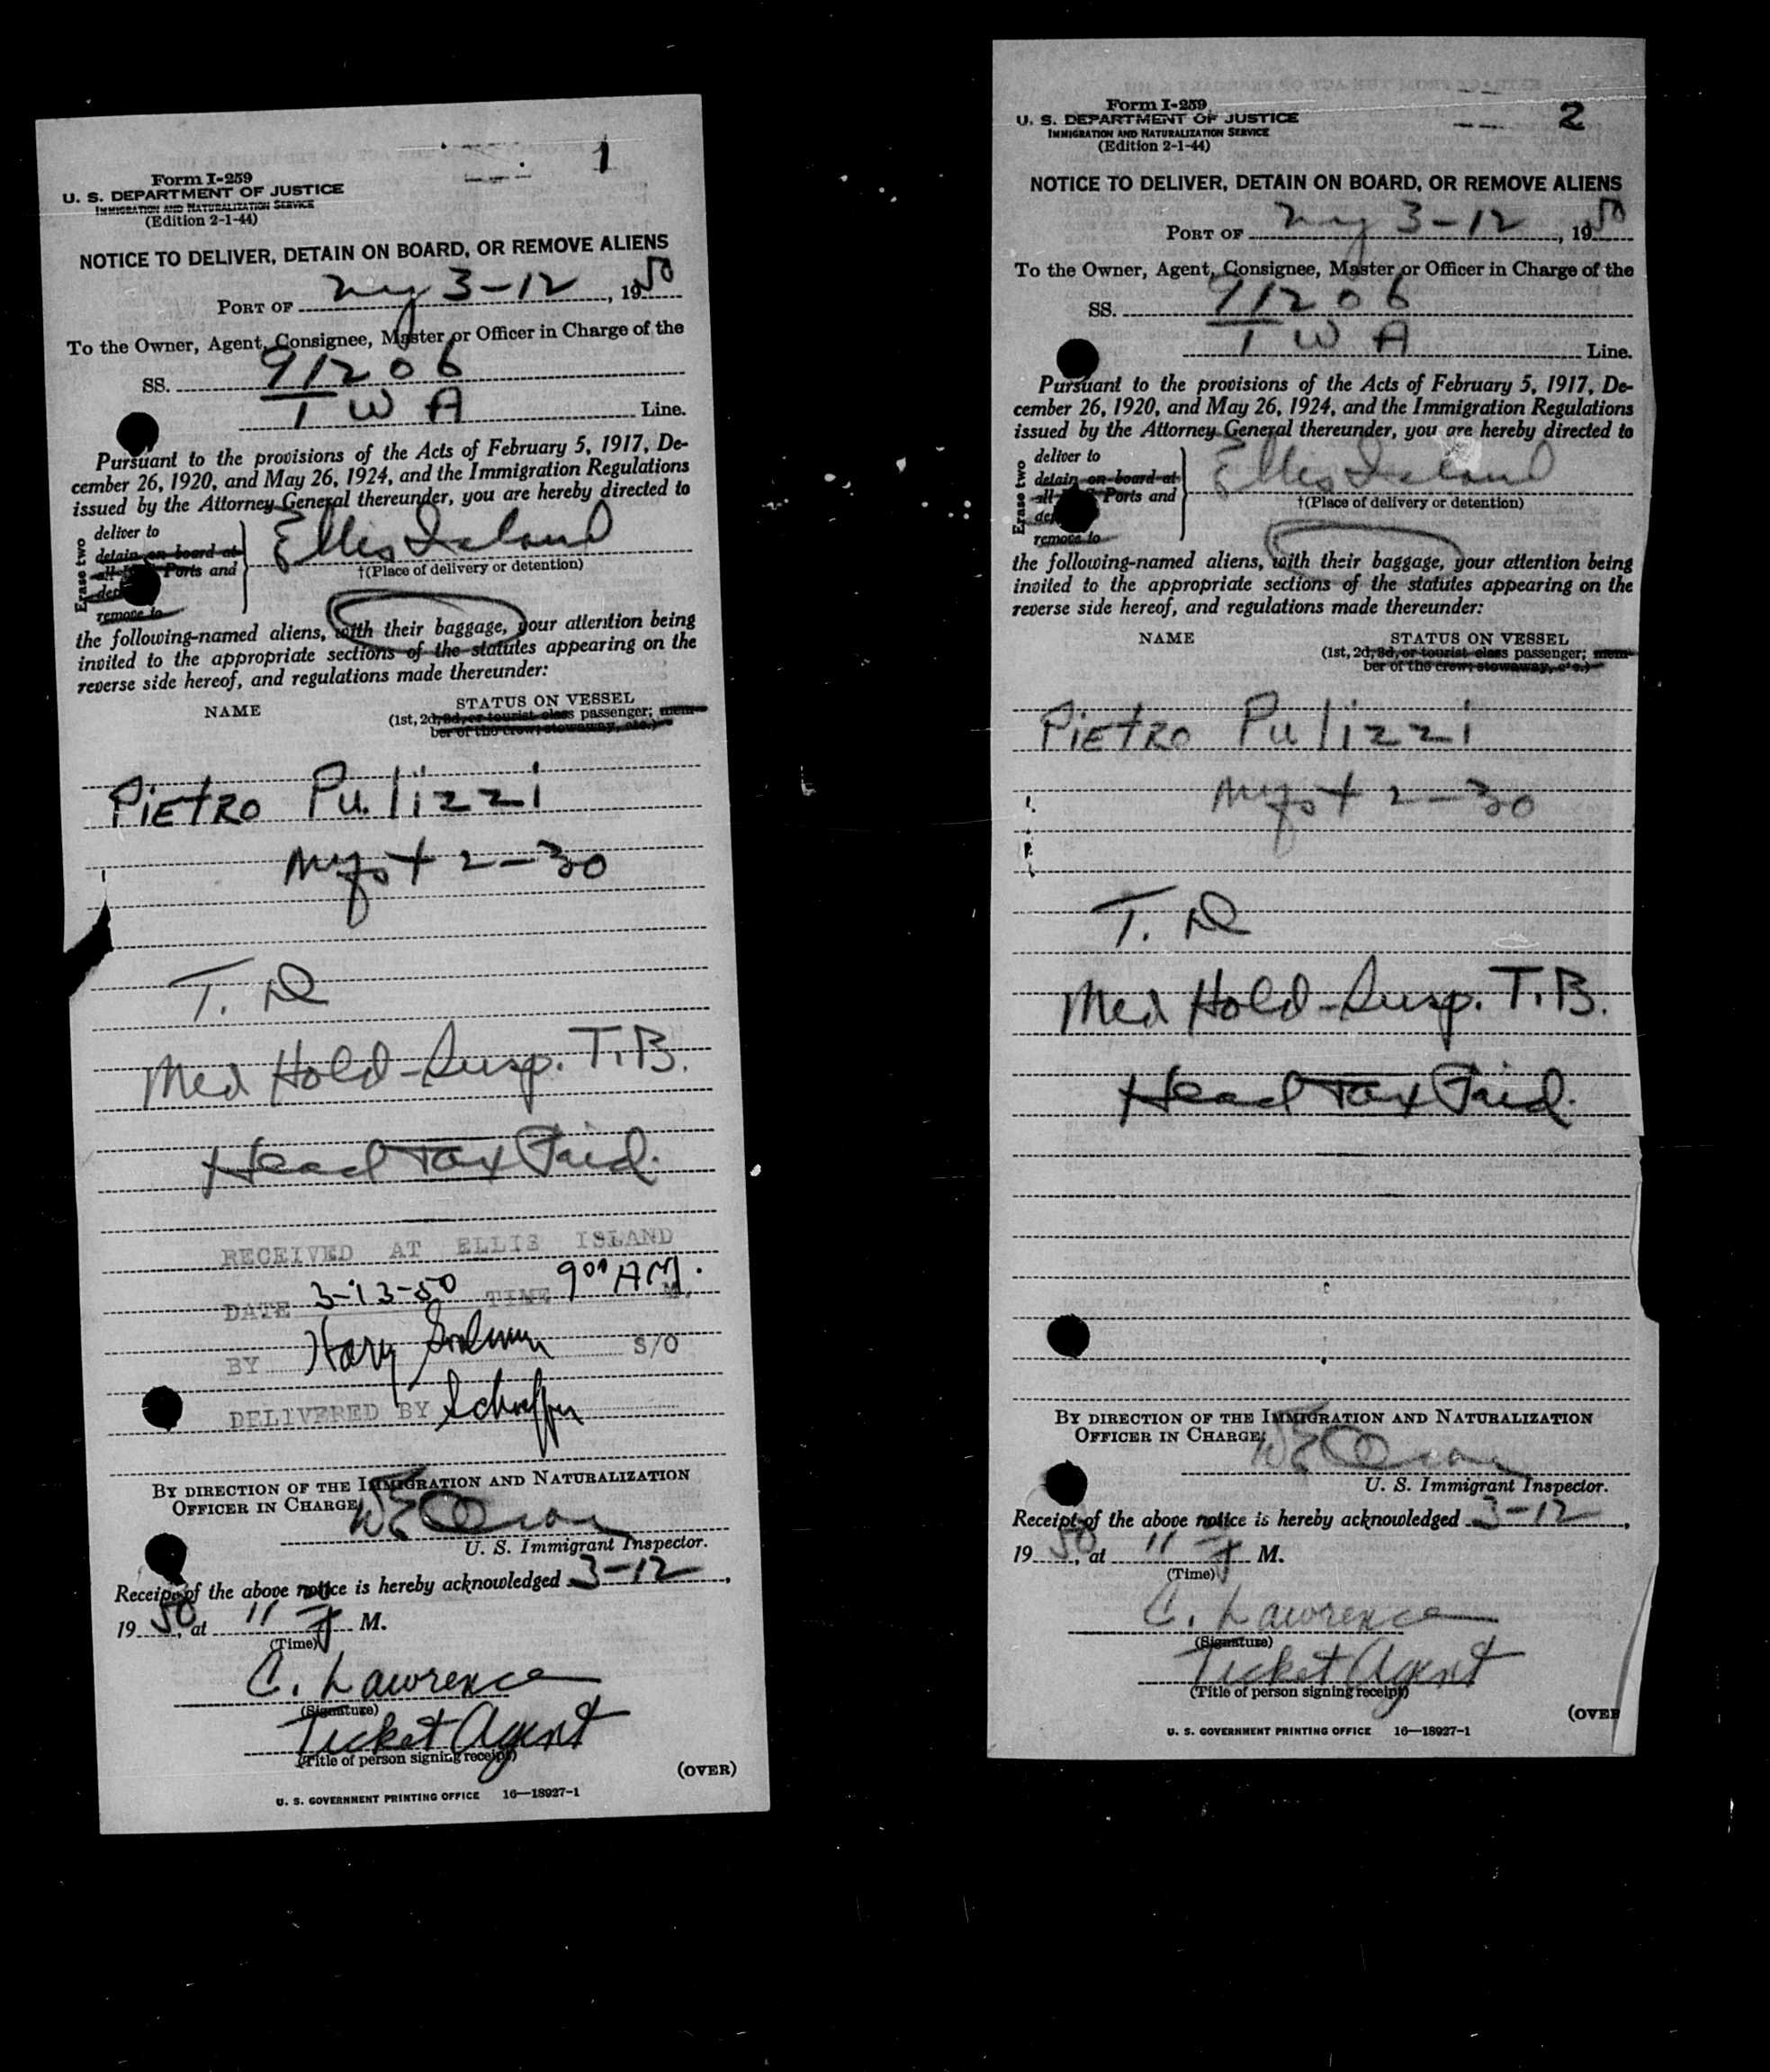 1
Form I-259
U. S. DEPARTMENT OF JUSTICE
IMMIGRATION AND NATURALIZATION SERVICE
(Edition 2-1-44)
NOTICE TO DELIVER, DETAIN ON BOARD, OR REMOVE ALIENS
PORT OF NY 3-12, 1950
To the Owner, Agent, Consignee, Master or Officer in Charge of the
SS. 91206
T W A Line.
Pursuant to the provisions of the Acts of February 5, 1917, De-
cember 26, 1920, and May 26, 1924, and the Immigration Regulations
issued by the Attorney General thereunder, you are hereby directed to
Erase two
deliver to
detain on board at
all Ports and
remove to
Ellis Island
†(Place of delivery or detention)
the following-named aliens, with their baggage, your attention being
invited to the appropriate sections of the statutes appearing on the
reverse side hereof, and regulations made thereunder:
NAME STATUS ON VESSEL
(1st, 2d, 3d, or tourist class passenger; mem-
ber of the crew; stowaway, etc.)
PIETRO Pulizzi
2-30
T. D
Med Hold - Susp. T.B.
Head Tax Paid.
RECEIVED AT ELLIS ISLAND
DATE 3-13-50 TIME 9 00 AM. M.
BY Harry S/O
DELIVERED BY
BY DIRECTION OF THE IMMIGRATION AND NATURALIZATION
OFFICER IN CHARGE:
U. S. Immigrant Inspector.
Receipt of the above notice is hereby acknowledged 3-12,
1950, at 11 M.
(Time)
C. Lawrence
(Signature)
Ticket Agent
(Title of person signing receipt)
(OVER)
U. S. GOVERNMENT PRINTING OFFICE 16—18927-1
2
Form I-259
U. S. DEPARTMENT OF JUSTICE
IMMIGRATION AND NATURALIZATION SERVICE
(Edition 2-1-44)
NOTICE TO DELIVER, DETAIN ON BOARD, OR REMOVE ALIENS
PORT OF NY 3-12, 1950
To the Owner, Agent, Consignee, Master or Officer in Charge of the
SS. 91206
T W A Line.
Pursuant to the provisions of the Acts of February 5, 1917, De-
cember 26, 1920, and May 26, 1924, and the Immigration Regulations
issued by the Attorney General thereunder, you are hereby directed to
Erase two
deliver to
detain on board at
all Ports and
remove to
Ellis Island
†(Place of delivery or detention)
the following-named aliens, with their baggage, your attention being
invited to the appropriate sections of the statutes appearing on the
reverse side hereof, and regulations made thereunder:
NAME STATUS ON VESSEL
(1st, 2d, 3d, or tourist class passenger; mem-
ber of the crew; stowaway, etc.)
PIETRO Pulizzi
2-30
T. D
Med Hold - Susp. T.B.
Head Tax Paid.
BY DIRECTION OF THE IMMIGRATION AND NATURALIZATION
OFFICER IN CHARGE:
U. S. Immigrant Inspector.
Receipt of the above notice is hereby acknowledged 3-12,
1950, at 11 M.
(Time)
C. Lawrence
(Signature)
Ticket Agent
(Title of person signing receipt)
(OVER
U. S. GOVERNMENT PRINTING OFFICE 16—18927-1